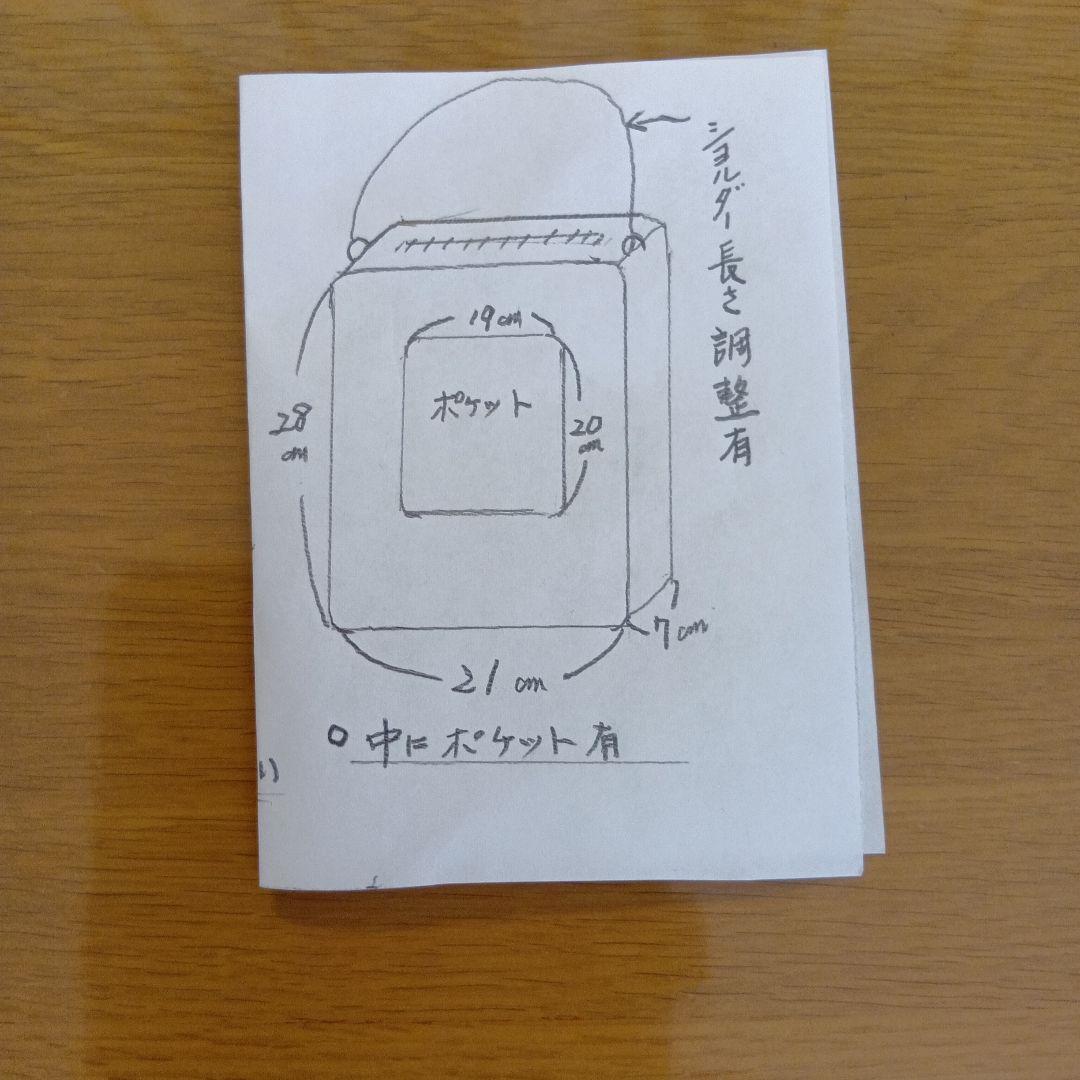 ショルダー長さ調整有
19cm
ポケット
20cm
28cm
7cm
21cm
○中にポケット有